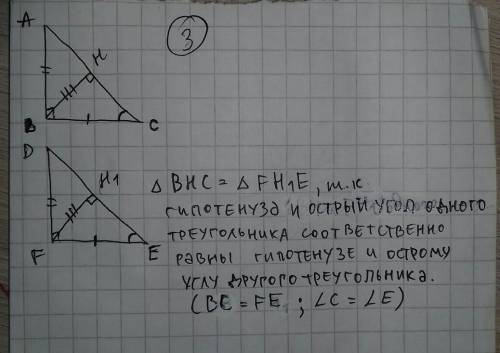 3
A
H
B
C
D
H1
F
E
△ BHC = △ FH1E, т.к
гипотенуза и острый угол одного
треугольника соответственно
равны гипотенузе и острому
углу другого треугольника.
(BC = FE ; ∠C = ∠E)